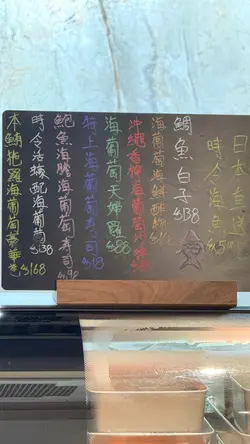 日本直送
時令海魚
鯛魚白子 $138
海葡萄海鮮
沖繩香檸海葡萄
海葡萄天婦羅 $88
海葡萄壽司 $18
鮑魚海膽海葡萄壽司 $98
時令活蠔配海葡萄 $138
本鮪拖羅海葡萄 $168